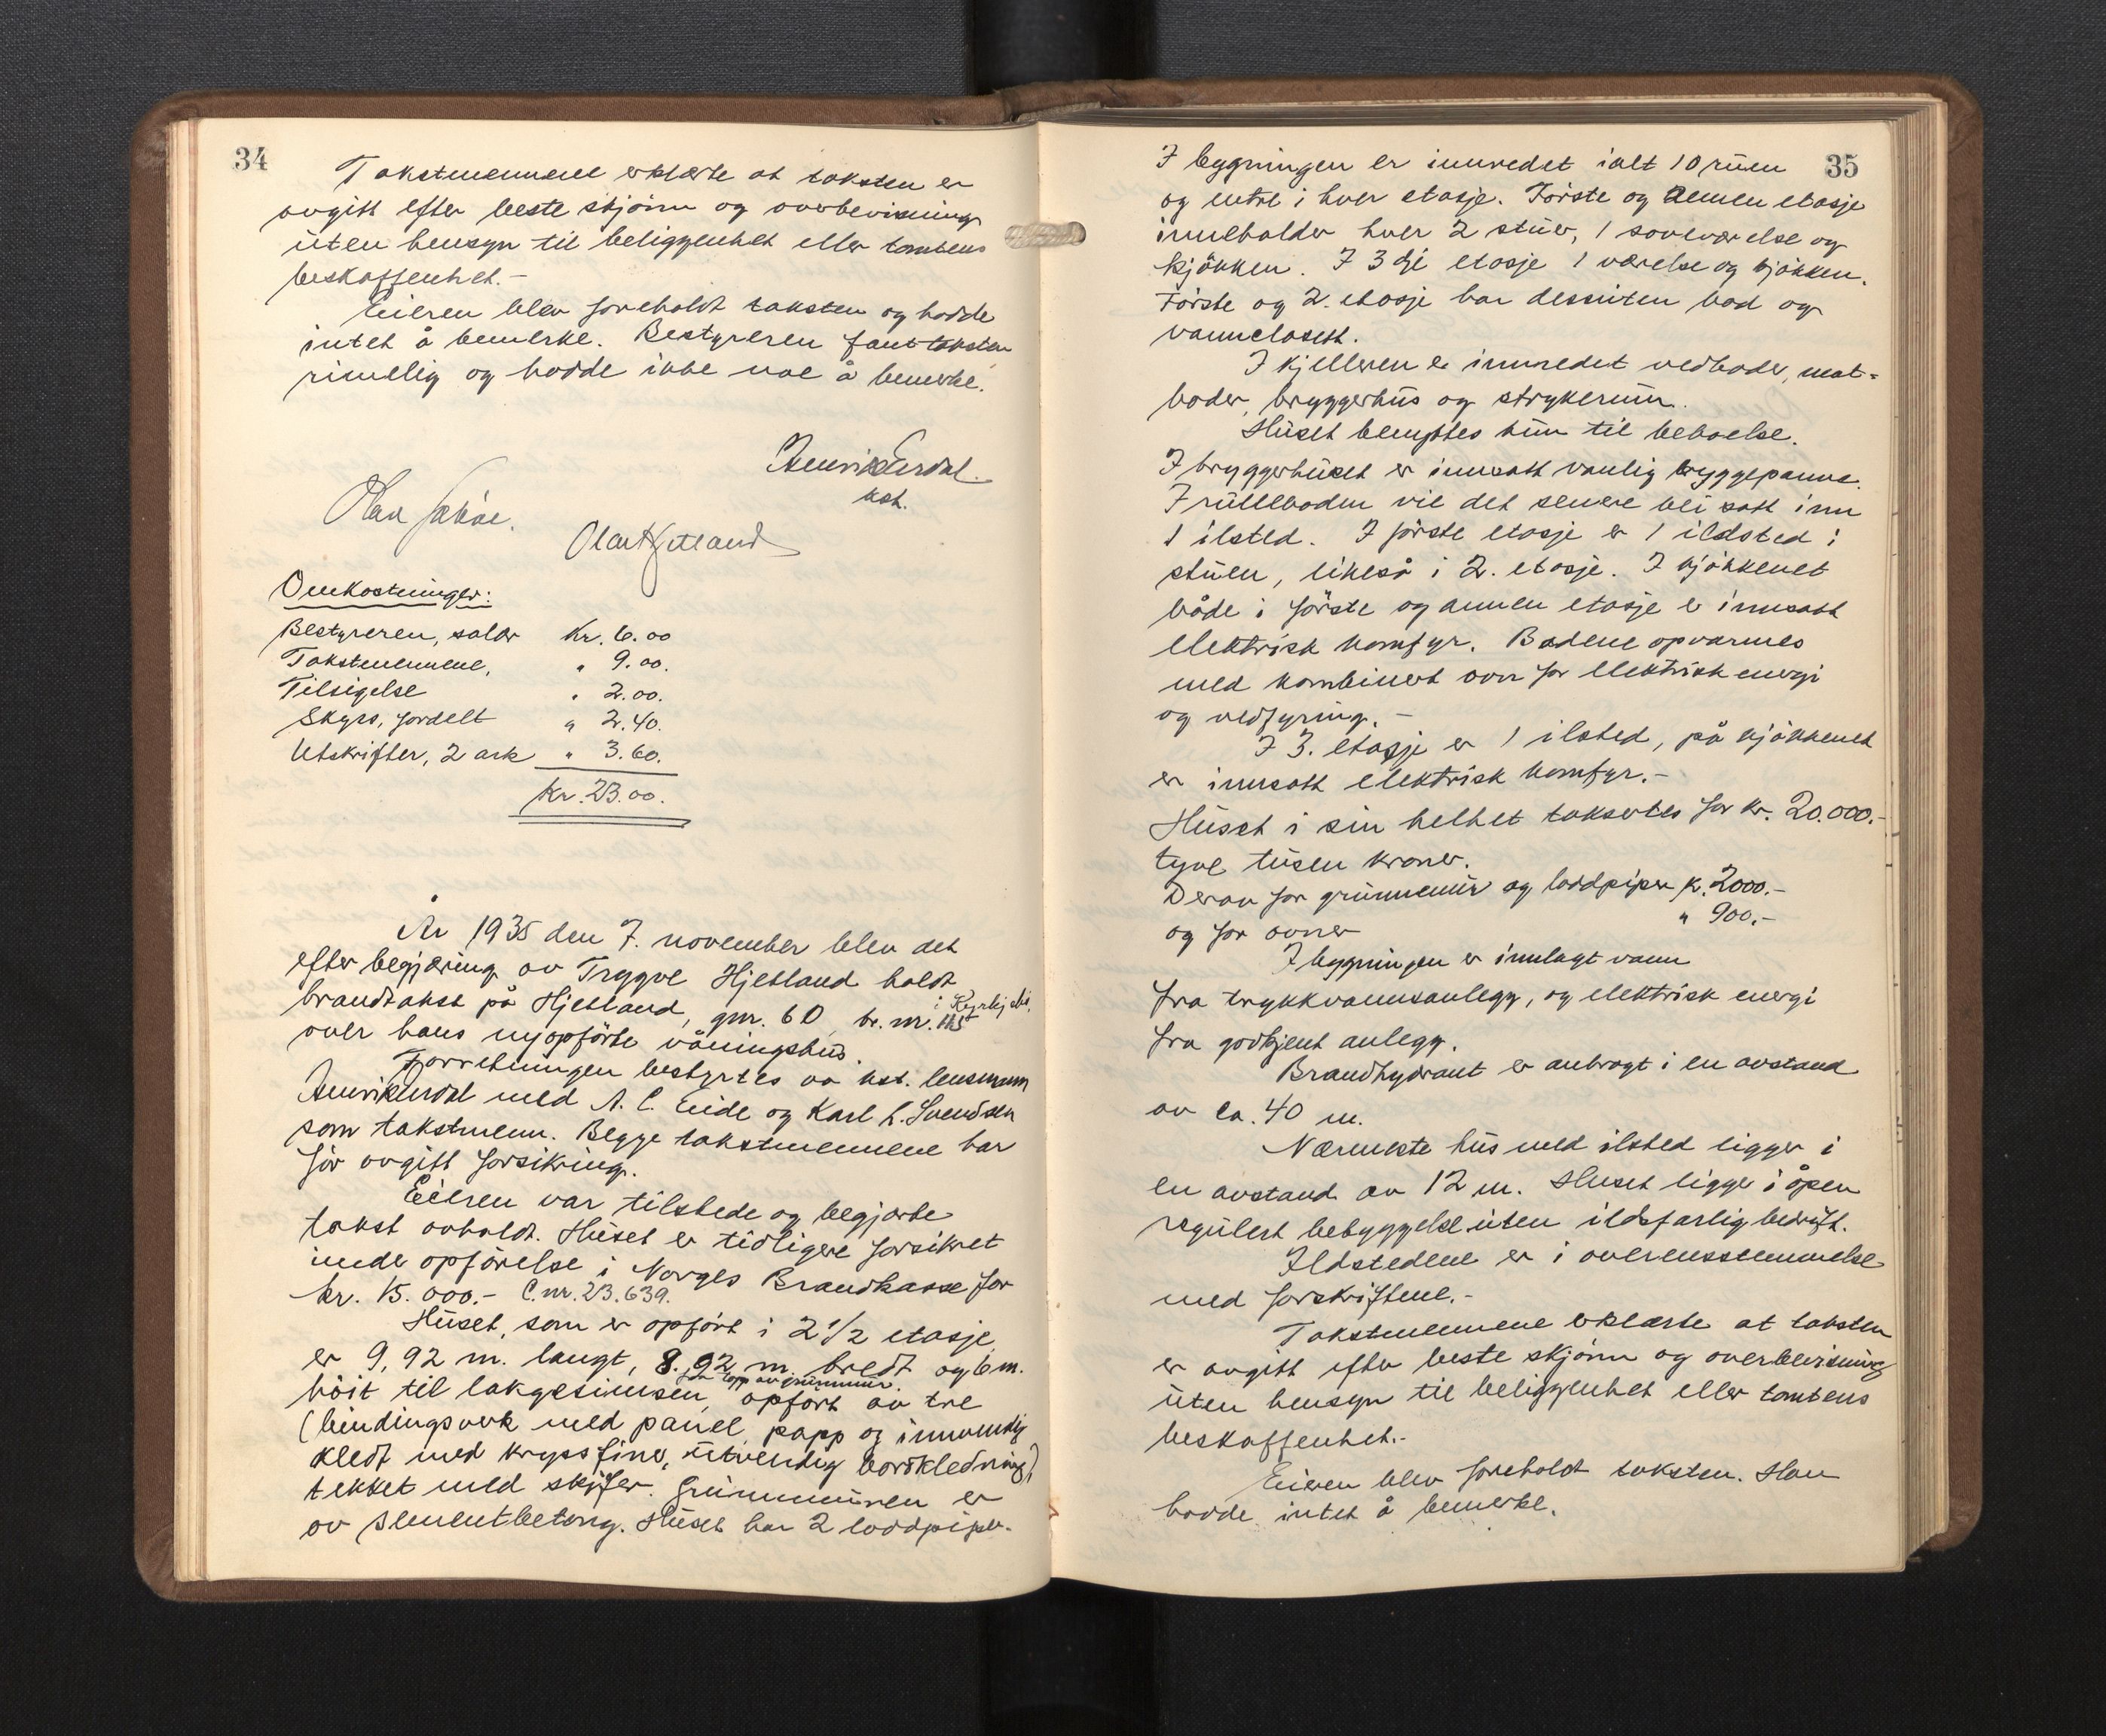 34
Takstmennene erklærte at taksten er
avgitt efter beste skjönn og overbevisning
uten hensyn til beliggenhet eller tomtens
beskaffenhet.-
Eieren blev foreholdt taksten og hadde
intet å bemerke. Bestyreren fant taksten
rimelig og hadde ikke noe å bemerke.
Henrik Erdal.
kst.
Olav
Olav Hjetland
Omkostninger:
Bestyreren, salær Kr. 6.00
Takstmennene, " 9.00.
Tilsigelse " 2.00.
Skyss, fordelt " 2.40.
Utskrifter, 2 ark " 3.60.
Kr. 23.00.
År 1935 den 7. november blev det
efter begjæring av Trygve Hjetland holdt
brandtakst på Hjetland, gnr. 60, br. nr. 115 i Kyrkjebö,
over hans nyopförte våningshus.
Forretningen bestyrtes av kst. lensmann
Henrik Erdal med A. C. Eide og Karl L. Svendsen
som takstmenn. Begge takstmennene har
för avgitt forsikring.
Eieren var tilstede og begjærte
takst avholdt. Huset er tidligere forsikret
under opförelse i Norges Brandkasse for
kr. 15.000.- C.nr. 23.639.
Huset, som er opfört i 2 1/2 etasje,
er 9,92 m. langt, 8,92 m. bredt og 6 m.
höit til takgesimsen fra topp av grunnmur, opfört av tre
(bindingsverk med panel, papp og innvendig
kledt med kryssfiner, utvendig bordkledning)
tekket med skifer. Grunnmuren er
av sementbetong. Huset har 2 loddpiper.
35
I bygningen er innredet ialt 10 rum
og entre i hver etasje. Förste og annen etasje
inneholder hver 2 stuer, 1 soveværelse og
kjökken. I 3dje etasje 1 værelse og kjökken.
Förste og 2. etasje har dessuten bad og
vannclosett.
I kjelleren er innredet vedboder, mat-
boder, bryggerhus og strykerum.
Huset benyttes kun til beboelse.
I bryggerhuset er innsatt vanlig bryggepanne.
I rulleboden vil det senere bli satt inn
1 ilsted. I förste etasje er 1 ildsted i
stuen, likeså i 2. etasje. I kjökkenet
både i förste og annen etasje er innsatt
elektrisk komfyr. Badene opvarmes
med kombinert ovn for elektrisk energi
og vedfyring.-
I 3. etasje er 1 ilsted, på kjökkenet
er innsatt elektrisk komfyr.-
Huset i sin helhet takseres for kr. 20.000.-
tyve tusen kroner.
Derav for grunnmur og loddpiper kr. 2000.-
og for ovner " 900.-
I bygningen er innlagt vann
fra trykkvannsanlegg, og elektrisk energi
fra godkjent anlegg.
Brandhydrant er anbragt i en avstand
av ca. 40 m.
Nærmeste hus med ilsted ligger i
en avstand av 12 m. Huset ligger i åpen
regulert bebyggelse uten ildsfarlig bedrift.
Ildstedene er i overensstemmelse
med forskriftene.-
Takstmennene erklærte at taksten
er avgitt efter beste skjönn og overbevisning
uten hensyn til beliggenhet eller tomtens
beskaffenhet.-
Eieren blev foreholdt taksten. Han
hadde intet å bemerke.